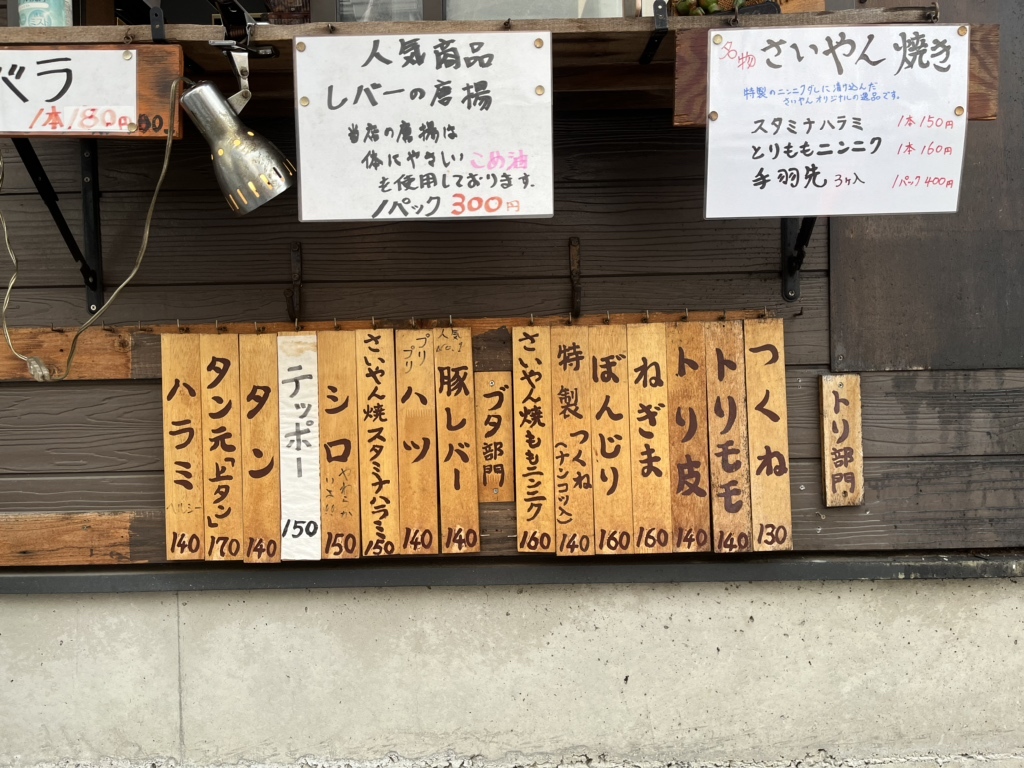 バラ
1本180円
人気商品
レバーの唐揚
当店の唐揚は
体にやさしい こめ油
も使用しております.
1パック 300円
名物 さいやん焼き
特製のニンニクダレに漬け込んだ
さいやんオリジナルの逸品です。
スタミナハラミ 1本150円
とりももニンニク 1本160円
手羽先 3ヶ入 1パック400円
トリ部門
つくね 130
トリモモ 140
トリ皮 140
ねぎま 160
ぼんじり 160
特製つくね(ナンコツ入) 140
さいやん焼ももニンニク 160
ブタ部門
人気No.1 豚レバー 140
プリプリ ハツ 140
さいやん焼スタミナハラミ 150
シロ 150
テッポー 150
タン 140
タン元「上タン」 170
ハラミ ヘルシー 140